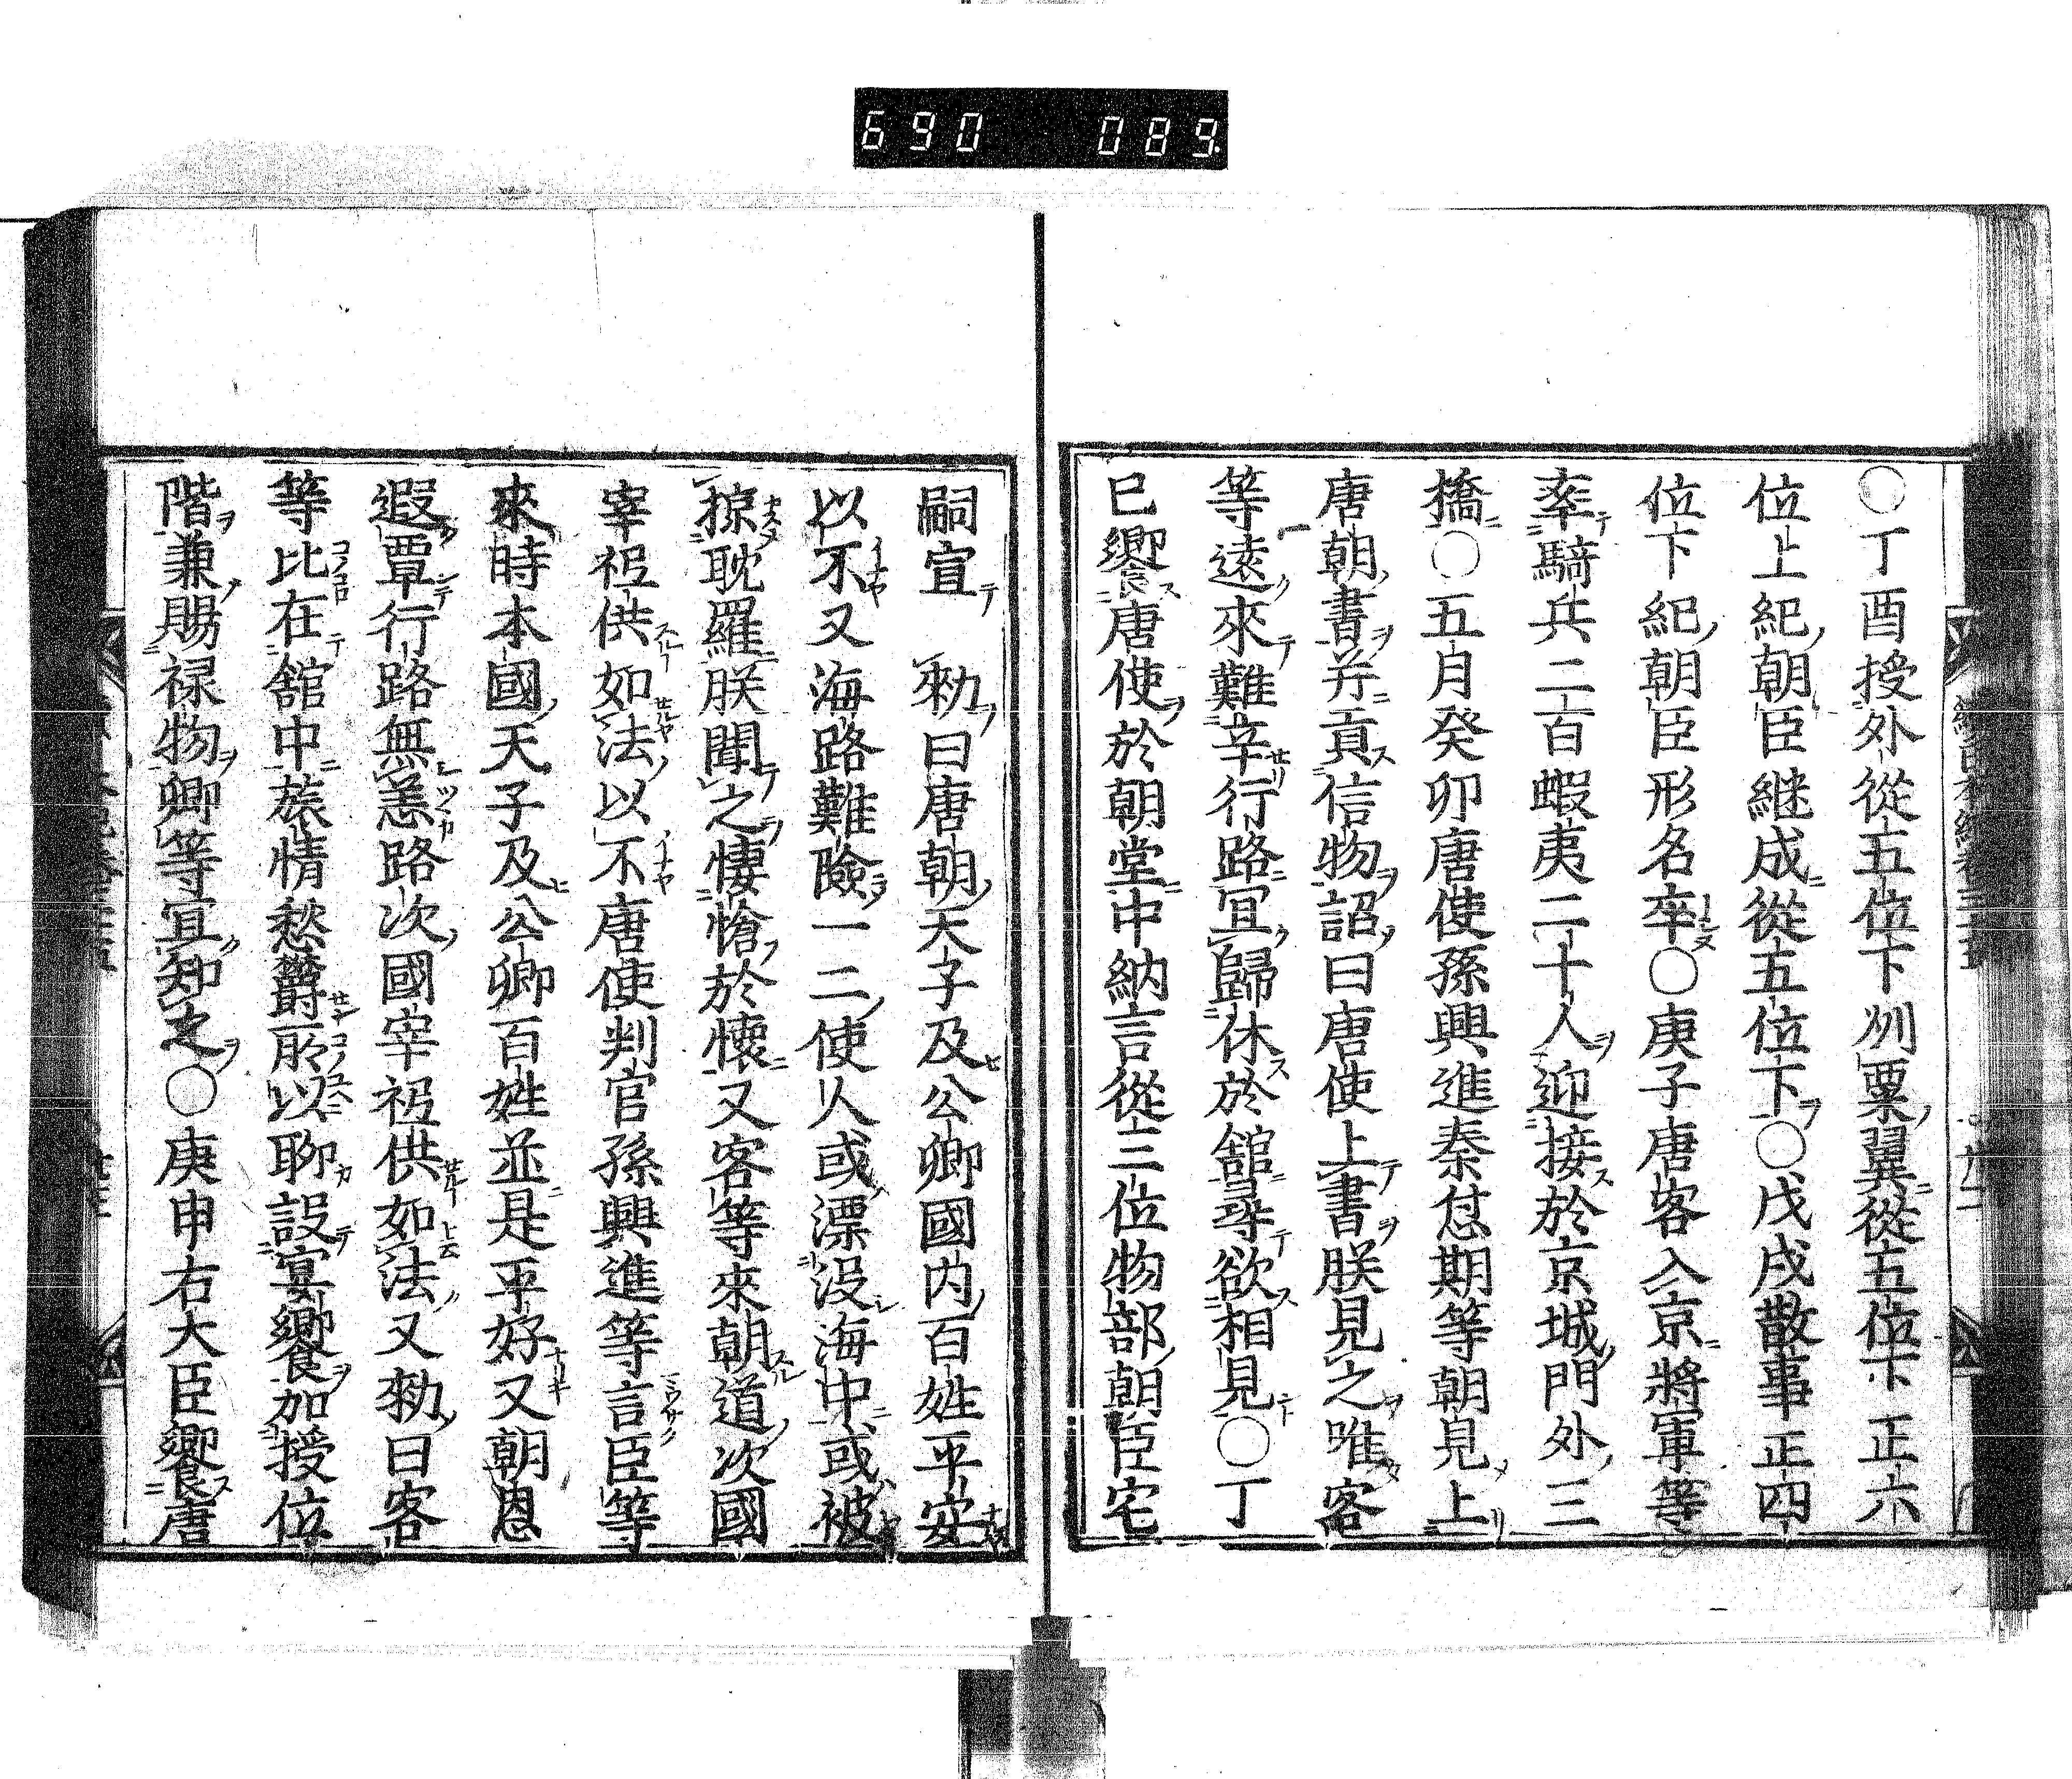 690 089
○丁酉授外從五位下刈粟翼從五位下正六
位上紀朝臣継成從五位下○戊戌散事正四
位下紀朝臣形名卒○庚子唐客入京將軍等
率騎兵二百蝦夷二十人迎接於京城門外三
橋○五月癸卯唐使孫興進秦怤期等朝見上
唐朝書并貢信物詔曰唐使上書朕見之唯客
等遠來難辛行路宜歸休於舘尋欲相見○丁
巳饗唐使於朝堂中納言從三位物部朝臣宅
嗣宣 勑曰唐朝天子及公卿國内百姓平安
以不又海路難險一二使人或漂没海中或被
掠耽羅朕聞之悽愴於懷又客等來朝道次國
宰祗供如法以不唐使判官孫興進等言臣等
來時本國天子及公卿百姓並是平好又朝恩
遐覃行路無恙路次國宰祗供如法又勑曰客
等比在舘中旅情愁欝所以聊設宴饗加授位
階兼賜禄物卿等宜知之○庚申右大臣饗唐